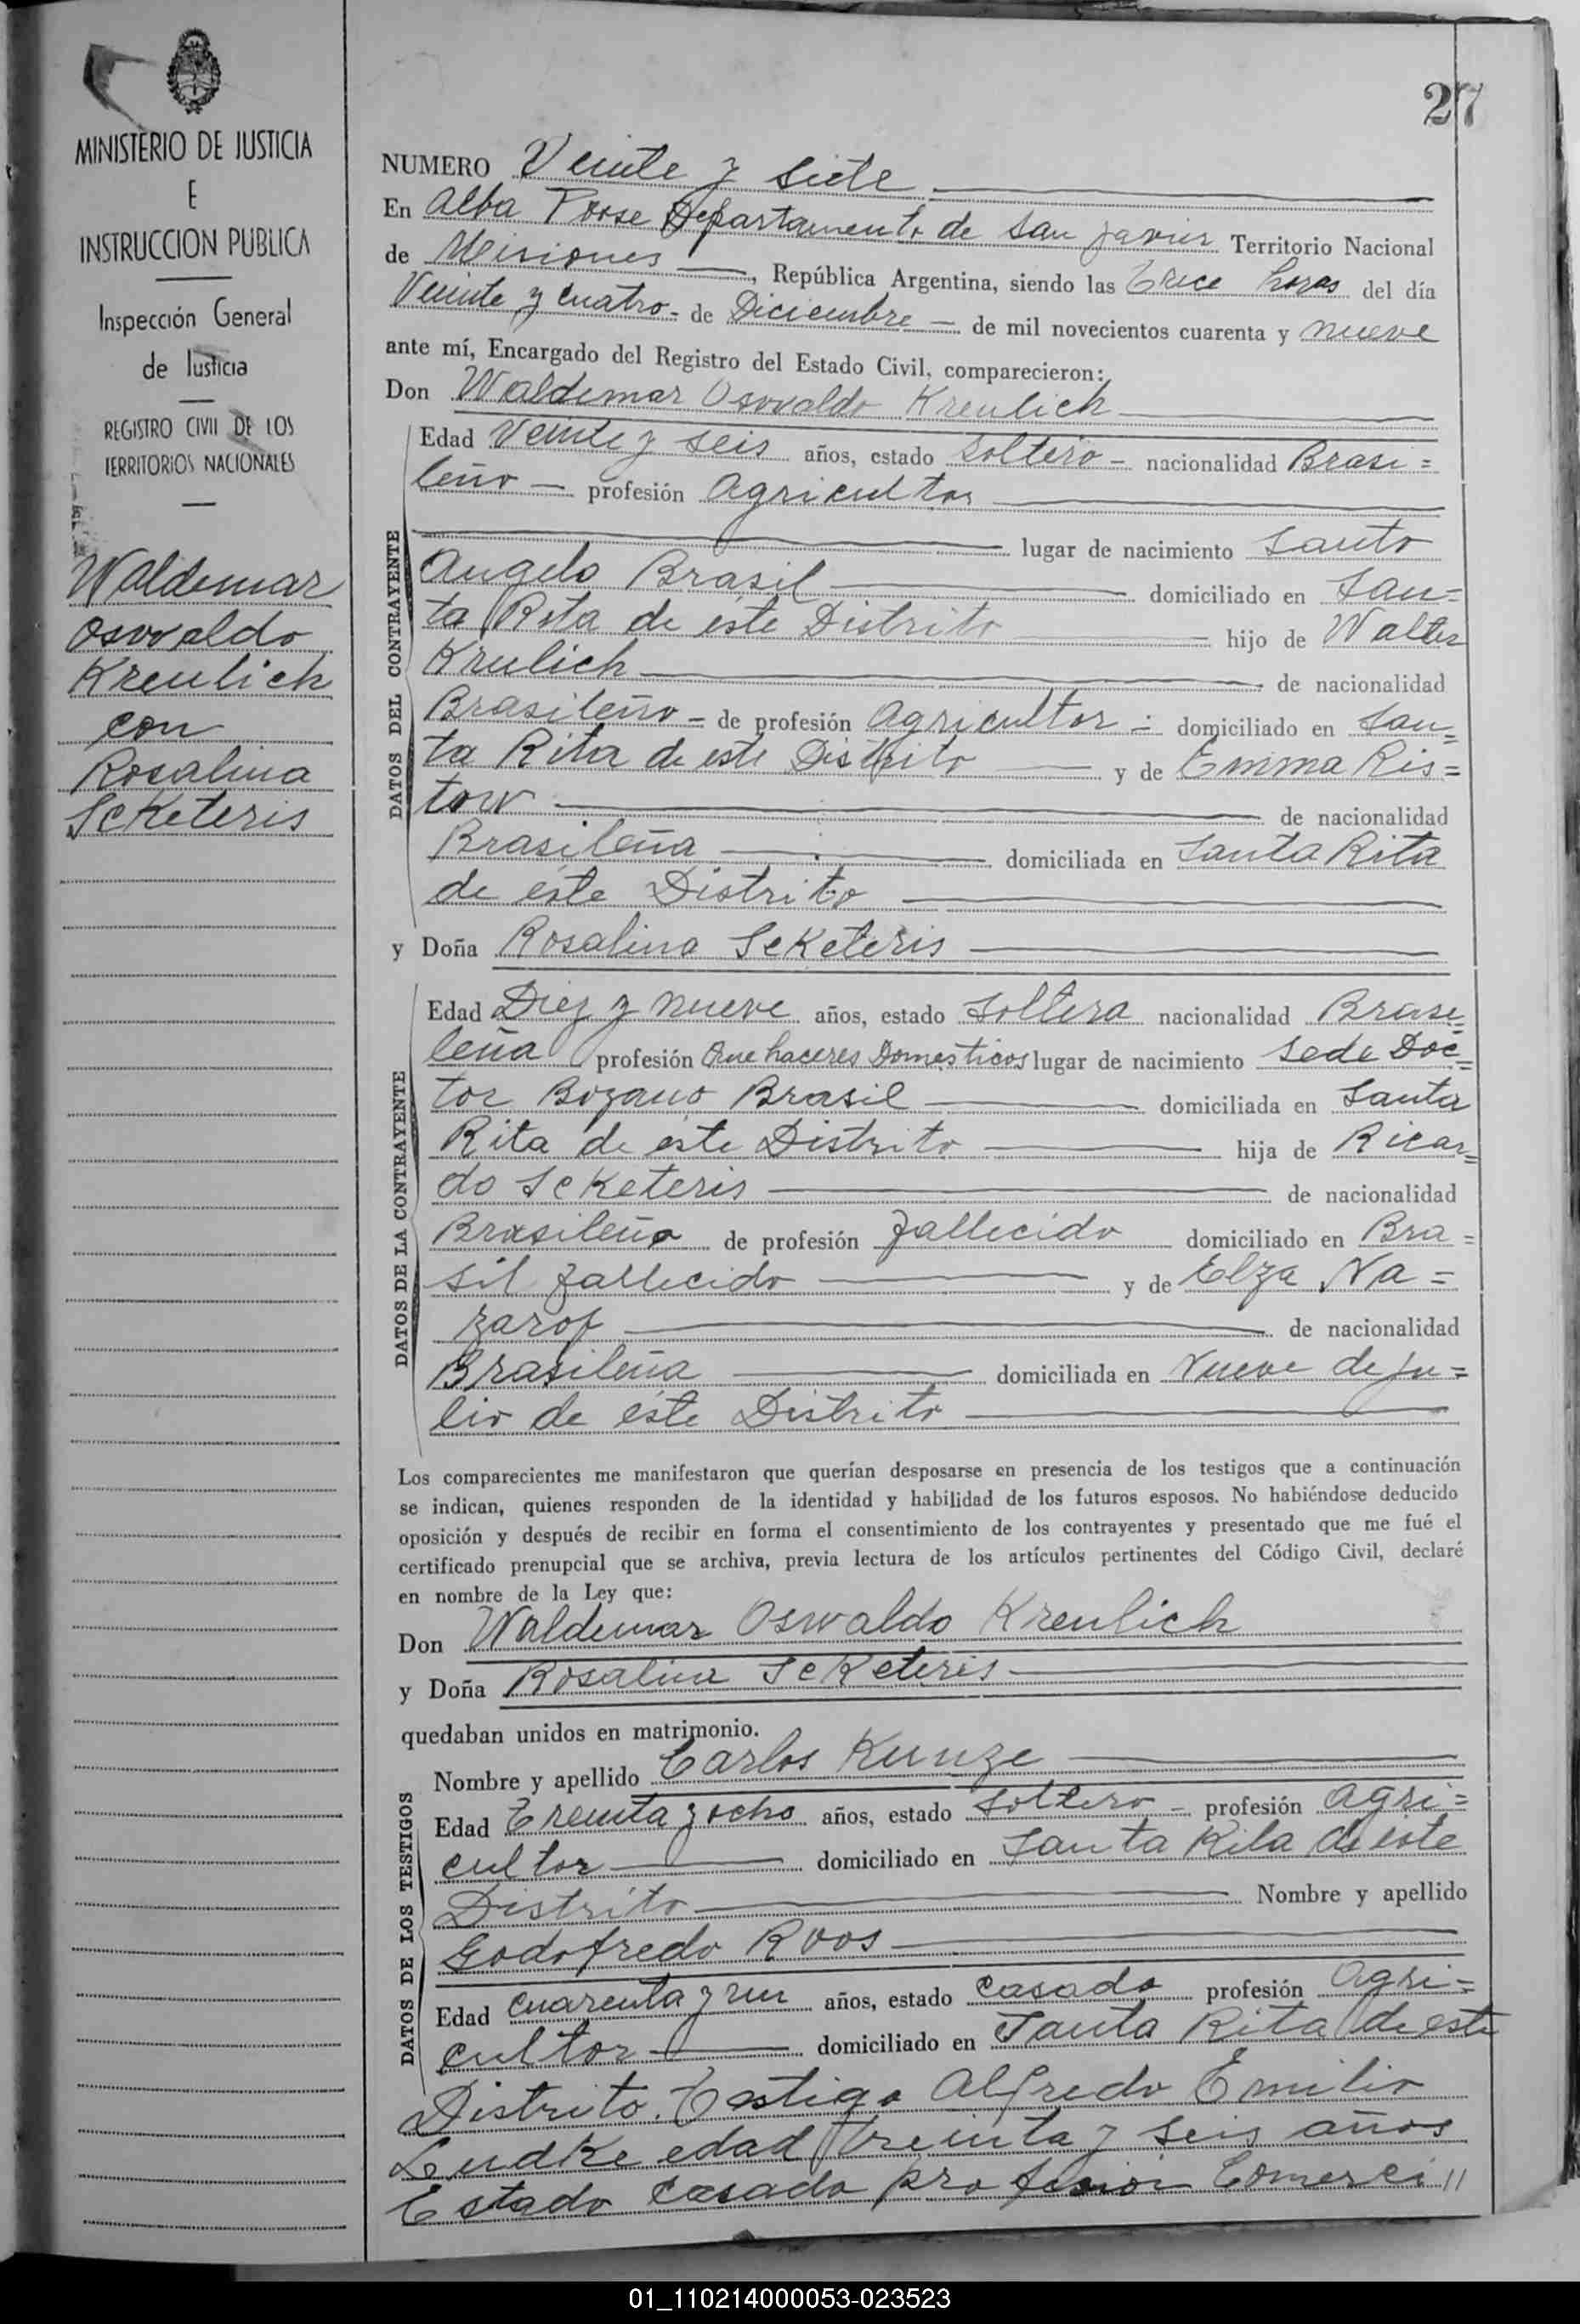 MINISTERIO DE JUSTICIA
E
INSTRUCCION PUBLICA
Inspección General
de Justicia
REGISTRO CIVIL DE LOS
TERRITORIOS NACIONALES
Waldemar
Osvvaldo
Kreulich
con
Rosalina
Seketeris
27
NUMERO Veinte y siete
En Alba Posse Departamento de San Javier Territorio Nacional
de Misiones, República Argentina, siendo las trece horas del día
Veinte y cuatro- de Diciembre - de mil novecientos cuarenta y nueve
ante mí, Encargado del Registro del Estado Civil, comparecieron:
Don Waldemar Osvvaldo Kreulich
DATOS DEL CONTRAYENTE
Edad Veinte y seis años, estado Soltero - nacionalidad Brasi=
leño - profesión Agricultor
lugar de nacimiento Santo
Angelo Brasil domiciliado en San=
ta Rita de este Distrito hijo de Walter
Krulich de nacionalidad
Brasileño - de profesión Agricultor - domiciliado en San=
ta Rita de este Distrito y de Emma Ris=
tow de nacionalidad
Brasileña domiciliada en Santa Rita
de este Distrito
y Doña Rosalina Seketeris
DATOS DE LA CONTRAYENTE
Edad Diez y nueve años, estado Soltera nacionalidad Brasi=
leña profesión Que haceres Domesticos lugar de nacimiento Sede Doc=
tor Bozano Brasil domiciliada en Santa
Rita de este Distrito hija de Ricar=
do Seketeris de nacionalidad
Brasileño de profesión fallecido domiciliado en Bra=
sil fallecido y de Elza Na=
zarof de nacionalidad
Brasileña domiciliada en Nueve de Ju=
lio de este Distrito
Los comparecientes me manifestaron que querían desposarse en presencia de los testigos que a continuación
se indican, quienes responden de la identidad y habilidad de los futuros esposos. No habiéndose deducido
oposición y después de recibir en forma el consentimiento de los contrayentes y presentado que me fué el
certificado prenupcial que se archiva, previa lectura de los artículos pertinentes del Código Civil, declaré
en nombre de la Ley que:
Don Waldemar Oswaldo Kreulich
y Doña Rosalina Seketeris
quedaban unidos en matrimonio.
DATOS DE LOS TESTIGOS
Nombre y apellido Carlos Kunze
Edad Treinta y ocho años, estado Soltero - profesión Agri=
cultor domiciliado en Santa Rita de este
Distrito Nombre y apellido
Godofredo Roos
Edad cuarenta y un años, estado Casado profesión Agri=
cultor domiciliado en Santa Rita de este
Distrito. Testigo Alfredo Emilio
Ludke edad treinta y seis años
Estado Casado profesion Comerci //
01_110214000053-023523